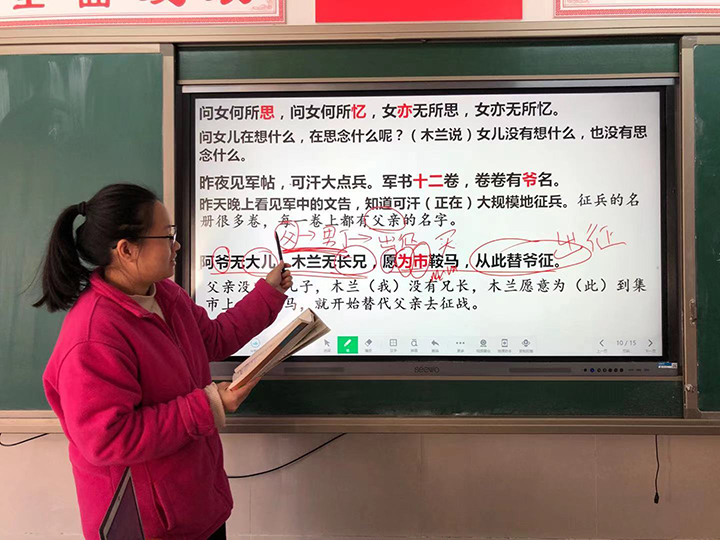 问女何所思，问女何所忆。女亦无所思，女亦无所忆。
问女儿在想什么，在思念什么呢？（木兰说）女儿没有想什么，也没有思
念什么。
昨夜见军帖，可汗大点兵。军书十二卷，卷卷有爷名。
昨天晚上看见军中的文告，知道可汗（正在）大规模地征兵。征兵的名
册很多卷，每一卷上都有父亲的名字。
男丁
买
出征
阿爷无大儿，木兰无长兄，愿为市鞍马，从此替爷征。
父亲没 儿子，木兰（我）没有兄长，木兰愿意为（此）到集
市上 马，就开始替代父亲去征战。
10 / 15
上一页
下一页
seewo